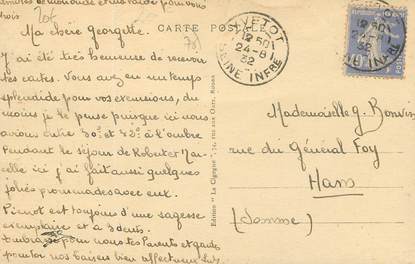 CARTE POSTALE
20f
YVETOT
12 50
24-8
32
SEINE INFRE
Ma chère Georgette.
J'ai été très heureuse de recevoir
tes cartes. Vous avez eu un temps
splendide pour vos excursions, du
moins je le pense puisque ici nous
avions entre 30° et 42° à l'ombre
Pendant le séjour de Robert et Mar-
celle ici j'ai fait aussi quelques
jolies promenades avec eux.
Pierrot est toujours d'une sagesse
exemplaire et a 3 dents.
pour nous tes Parents et garde
pour toi nos baisers bien affectueux
Edition "La Cigogne", rue aux Ours, Rouen
Mademoiselle G.
rue du Général Foy
Ham
(Somme)